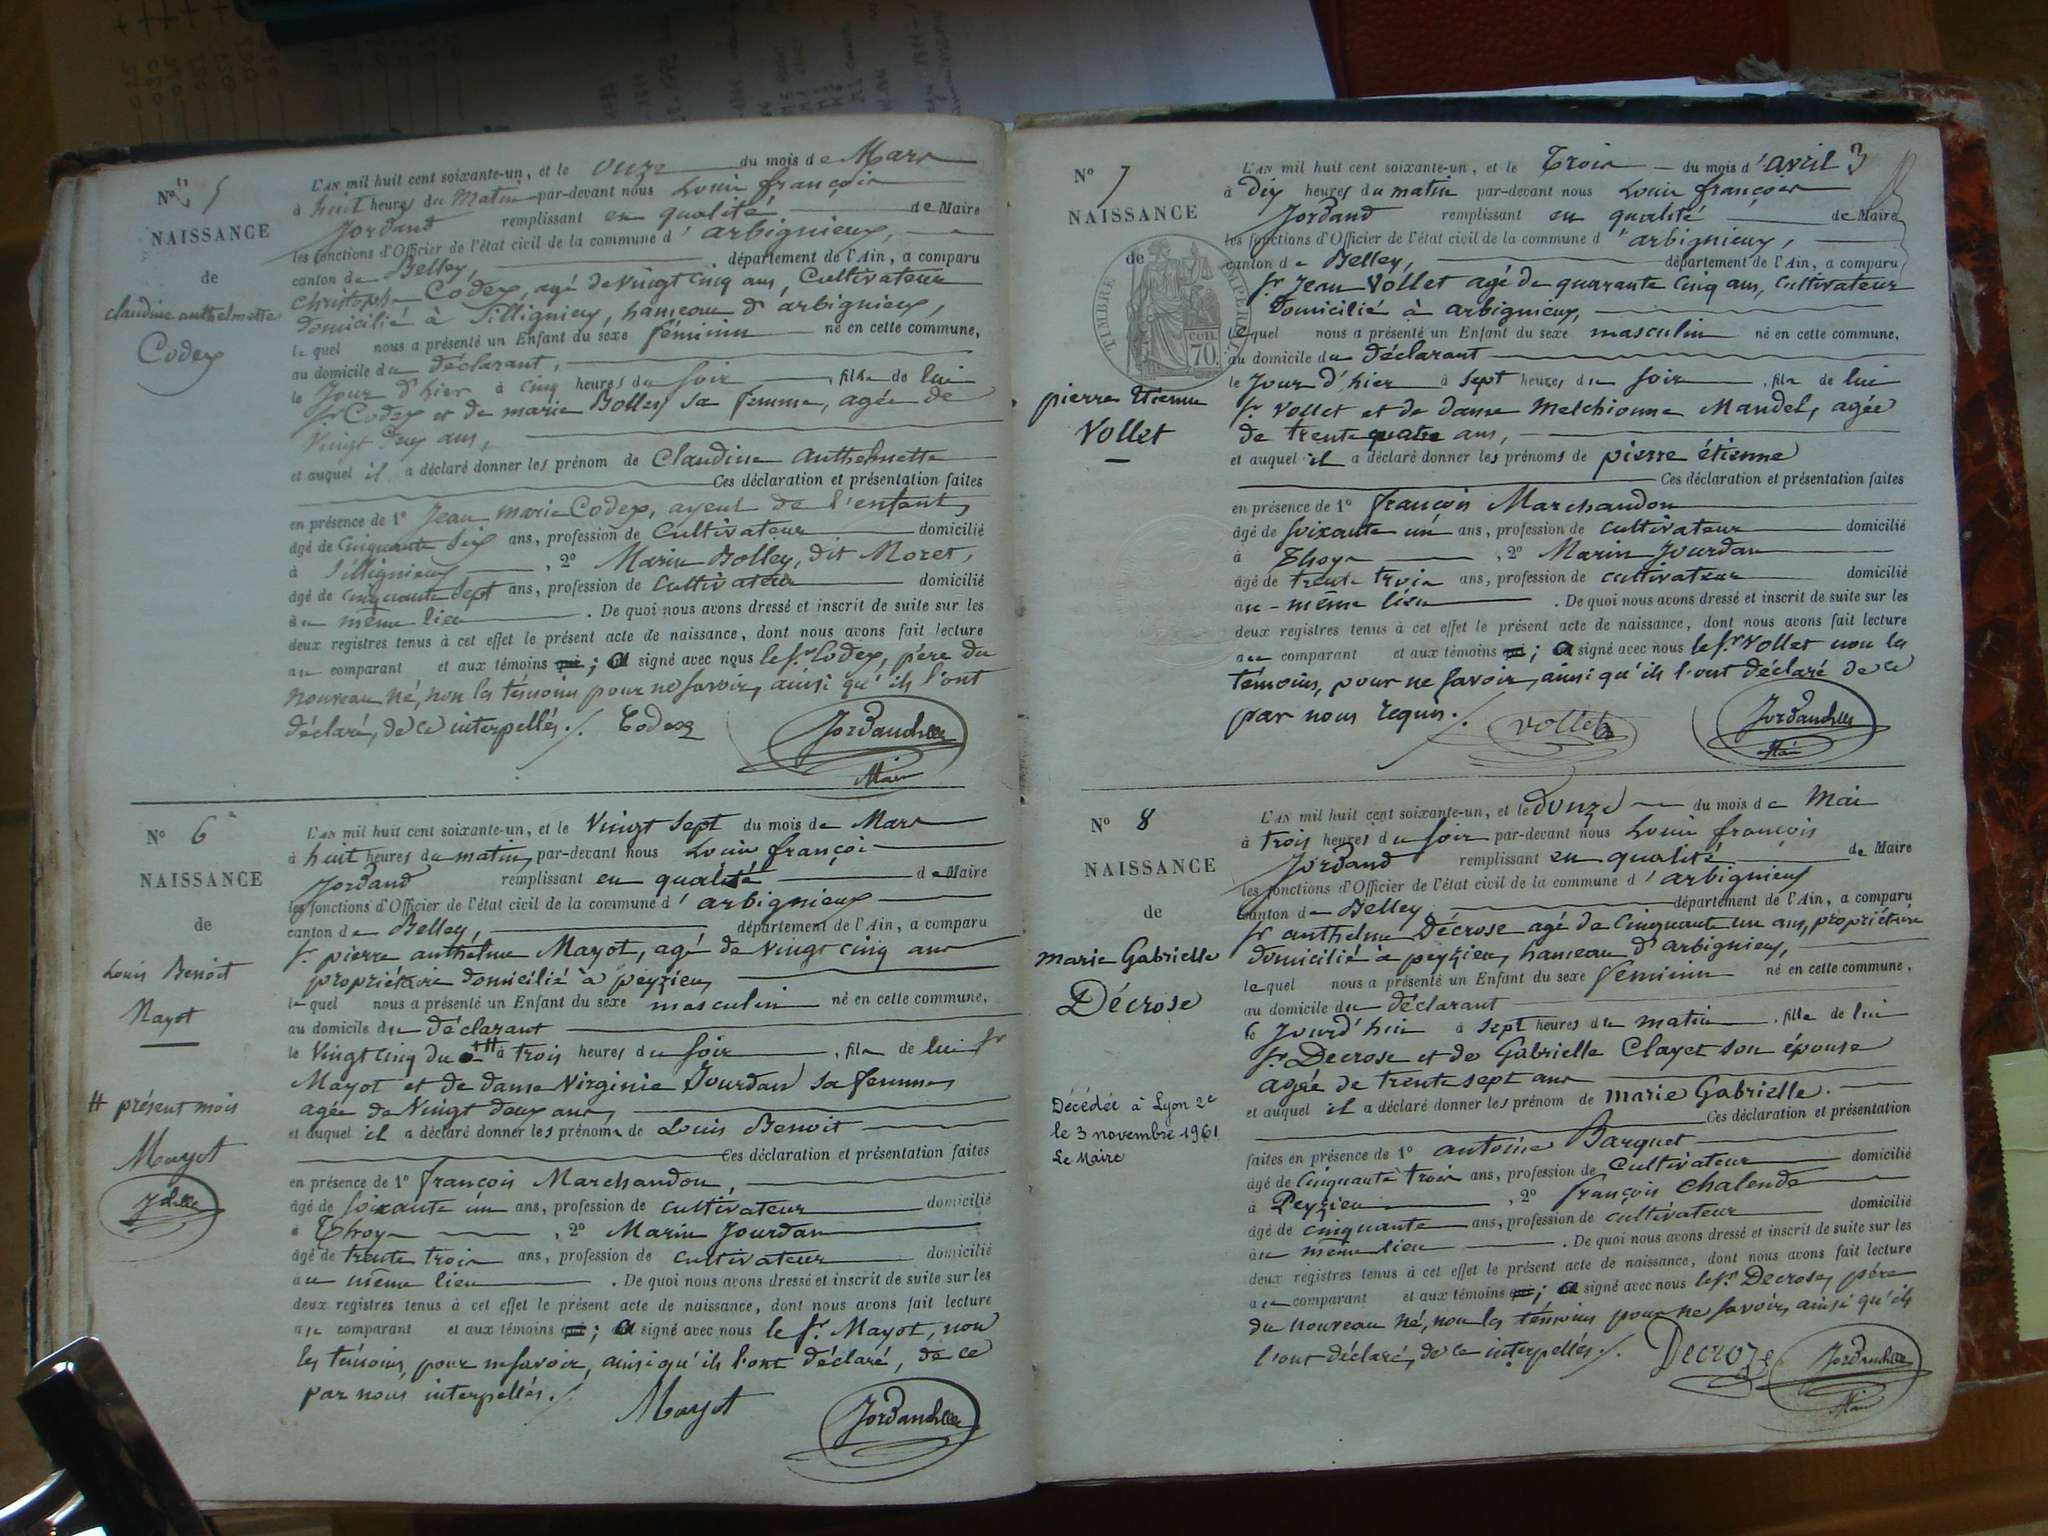 Nº 5
NAISSANCE
de
Claudine anthelmette
Codex
L'AN mil huit cent soixante-un, et le onze du mois de Mars
à huit heures du Matin par-devant nous Louis françois
Jordand remplissant en qualité de Maire
les fonctions d'Officier de l'état civil de la commune d'arbignieux,
canton de Belley, département de l'Ain, a comparu
Christophe Codex, agé de vingt cinq ans, Cultivateur
domicilié à Sillignieux, hameau d'arbignieux,
lequel nous a présenté un Enfant du sexe féminin né en cette commune,
au domicile du déclarant,
le Jour d'hier à cinq heures du soir, fille de lui
Sr. Codex et de marie Bolley sa femme, agée de
Vingt deux ans,
et auquel il a déclaré donner les prénom de Claudine Anthelmette
Ces déclaration et présentation faites
en présence de 1º Jean marie Codex, ayeul de l'enfant,
âgé de Cinquante six ans, profession de Cultivateur domicilié
à Sillignieux, 2º Marin Bolley, dit Moret,
âgé de cinquante sept ans, profession de Cultivateur domicilié
au même lieu. De quoi nous avons dressé et inscrit de suite sur les
deux registres tenus à cet effet le présent acte de naissance, dont nous avons fait lecture
au comparant et aux témoins qui; et signé avec nous le Sr. Codex, père du
nouveau né, non les témoins pour ne savoir, ainsi qu'ils l'ont
déclaré, de ce interpellés./. Codex Jordand
Maire
Nº 6
NAISSANCE
de
Louis Benoit
Mayot
# présent mois
Mayot
L'AN mil huit cent soixante-un, et le Vingt sept du mois de Mars
à huit heures du matin, par-devant nous Louis françois
Jordand remplissant en qualité de Maire
les fonctions d'Officier de l'état civil de la commune d'arbignieux
canton de Belley, département de l'Ain, a comparu
Sr. pierre anthelme Mayot, agé de vingt cinq ans
propriétaire domicilié à peyzieu,
lequel nous a présenté un Enfant du sexe masculin né en cette commune,
au domicile du déclarant
le Vingt cinq du # à trois heures du soir, fils de lui Sr
Mayot et de dame Virginie Jourdan sa femme,
agée de Vingt deux ans,
et auquel il a déclaré donner les prénoms de Louis Benoit
Ces déclaration et présentation faites
en présence de 1º françois Marchandon,
âgé de soixante un ans, profession de cultivateur domicilié
à Thoys, 2º Marin Jourdan
âgé de trente trois ans, profession de cultivateur domicilié
au même lieu. De quoi nous avons dressé et inscrit de suite sur les
deux registres tenus à cet effet le présent acte de naissance, dont nous avons fait lecture
au comparant et aux témoins qui; et signé avec nous le Sr. Mayot, non
les témoins, pour ne savoir, ainsi qu'ils l'ont déclaré, de ce
par nous interpellés./.
Mayot Jordand
Nº 7
NAISSANCE
de
TIMBRE IMPERIAL
70.
pierre Etienne
Vollet
L'AN mil huit cent soixante-un, et le Trois du mois d'avril 3
à Dix heures du matin par-devant nous Louis françois
Jordand remplissant en qualité de Maire
les fonctions d'Officier de l'état civil de la commune d'arbignieux,
canton de Belley, département de l'Ain, a comparu
Sr. Jean Vollet agé de quarante cinq ans, cultivateur
Domicilié à arbignieux,
lequel nous a présenté un Enfant du sexe masculin né en cette commune,
au domicile du déclarant
le Jour d'hier à sept heures du soir, fils de lui
Sr. Vollet et de dame Melchionne Mandel, agée
de trente quatre ans,
et auquel il a déclaré donner les prénoms de pierre étienne
Ces déclaration et présentation faites
en présence de 1º françois Marchandon
âgé de soixante un ans, profession de cultivateur domicilié
à Thoys, 2º Marin Jourdan
âgé de trente trois ans, profession de cultivateur domicilié
au même lieu. De quoi nous avons dressé et inscrit de suite sur les
deux registres tenus à cet effet le présent acte de naissance, dont nous avons fait lecture
au comparant et aux témoins qui; et signé avec nous le Sr. Vollet non les
témoins, pour ne savoir, ainsi qu'ils l'ont déclaré de ce
par nous requis./. Vollet Jordand
Maire
Nº 8
NAISSANCE
de
marie Gabrielle
Décrose
Décédée à Lyon 2e
le 3 novembre 1961
Le Maire
L'AN mil huit cent soixante-un, et le douze du mois de Mai
à trois heures du soir par-devant nous Louis françois
Jordand remplissant en qualité de Maire
les fonctions d'Officier de l'état civil de la commune d'arbignieux
canton de Belley département de l'Ain, a comparu
Sr anthelme Décrose agé de Cinquante un ans, propriétaire
domicilié à peyzieu, hameau d'arbignieu,
lequel nous a présenté un Enfant du sexe féminin né en cette commune,
au domicile du déclarant
le Jourd'hui à sept heures du matin, fille de lui
Sr. Decrose et de Gabrielle Clayet son épouse
agée de trente sept ans
et auquel il a déclaré donner les prénom de marie Gabrielle.
Ces déclaration et présentation
faites en présence de 1º antoine Barquet
âgé de cinquante trois ans, profession de Cultivateur domicilié
à Peyzieu, 2º françois Chalende
âgé de cinquante ans, profession de cultivateur domicilié
au même lieu. De quoi nous avons dressé et inscrit de suite sur les
deux registres tenus à cet effet le présent acte de naissance, dont nous avons fait lecture
au comparant et aux témoins qui; et signé avec nous le Sr. Decrose, père
du nouveau né, non les témoins pour ne savoir, ainsi qu'ils
l'ont déclaré, de ce interpellés./. Decroze Jordand
Maire